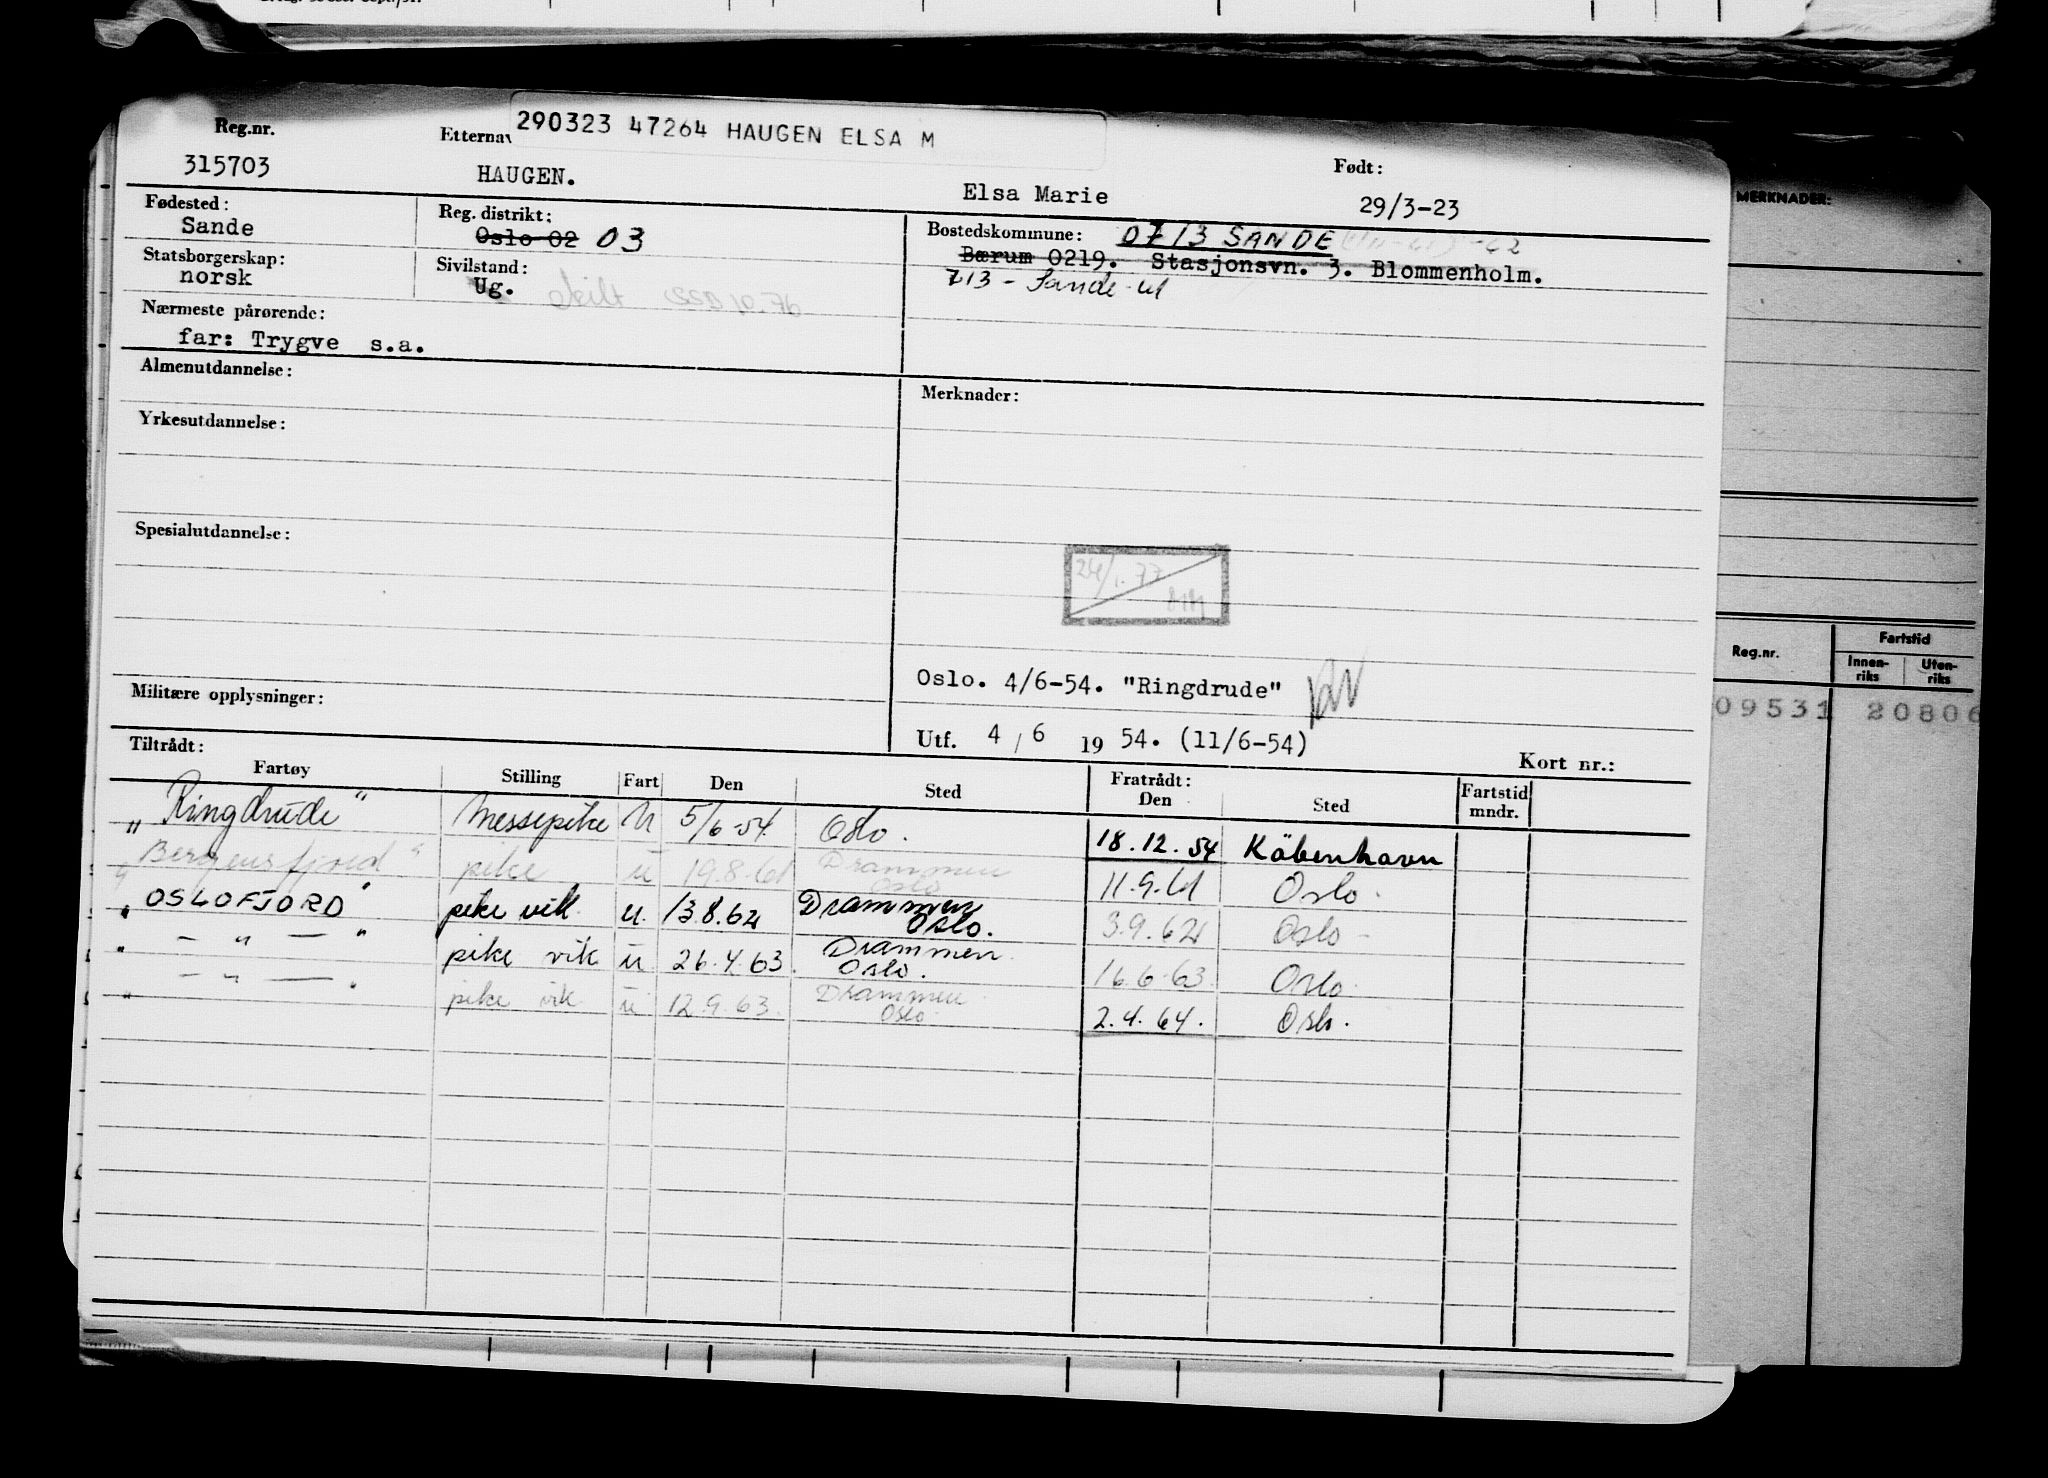 290323 47264 HAUGEN ELSA M
Reg.nr. Etternav Født:
315703 HAUGEN. Elsa Marie 29/3-23
Fødested: Reg. distrikt: Bostedskommune: 0713 SANDE
Sande Oslo 02 03 Bærum 0219. Stasjonsvn. 3. Blommenholm.
Statsborgerskap: Sivilstand: 713 - Sande
norsk Ug. skilt
Nærmeste pårørende:
far: Trygve s.a.
Almenutdannelse: Merknader:
Yrkesutdannelse:
Spesialutdannelse:
24/1.77
Oslo. 4/6-54. "Ringdrude"
Militære opplysninger:
Utf. 4/6 1954. (11/6-54)
Tiltrådt: Kort nr.:
Fartøy Stilling Fart Den Sted Fratrådt: Den Sted Fartstid mndr.
"Ringdrude" Messepike U 5/6-54 Oslo. 18.12.54 Köbenhavn
"Bergensfjord" pike u 19.8.61 Drammen Oslo 11.9.61 Oslo.
"OSLOFJORD" pike vik. u. 13.8.62 Drammen Oslo. 3.9.62 Oslo
" — " — " pike vik u 26.4.63. Drammen Oslo. 16.6.63 Oslo
" — " — " pike vik u 12.9.63. Drammen Oslo 2.4.64. Oslo.
MERKNADER:
Reg.nr. Fartstid
Innen-riks Uten-riks
09531 20806